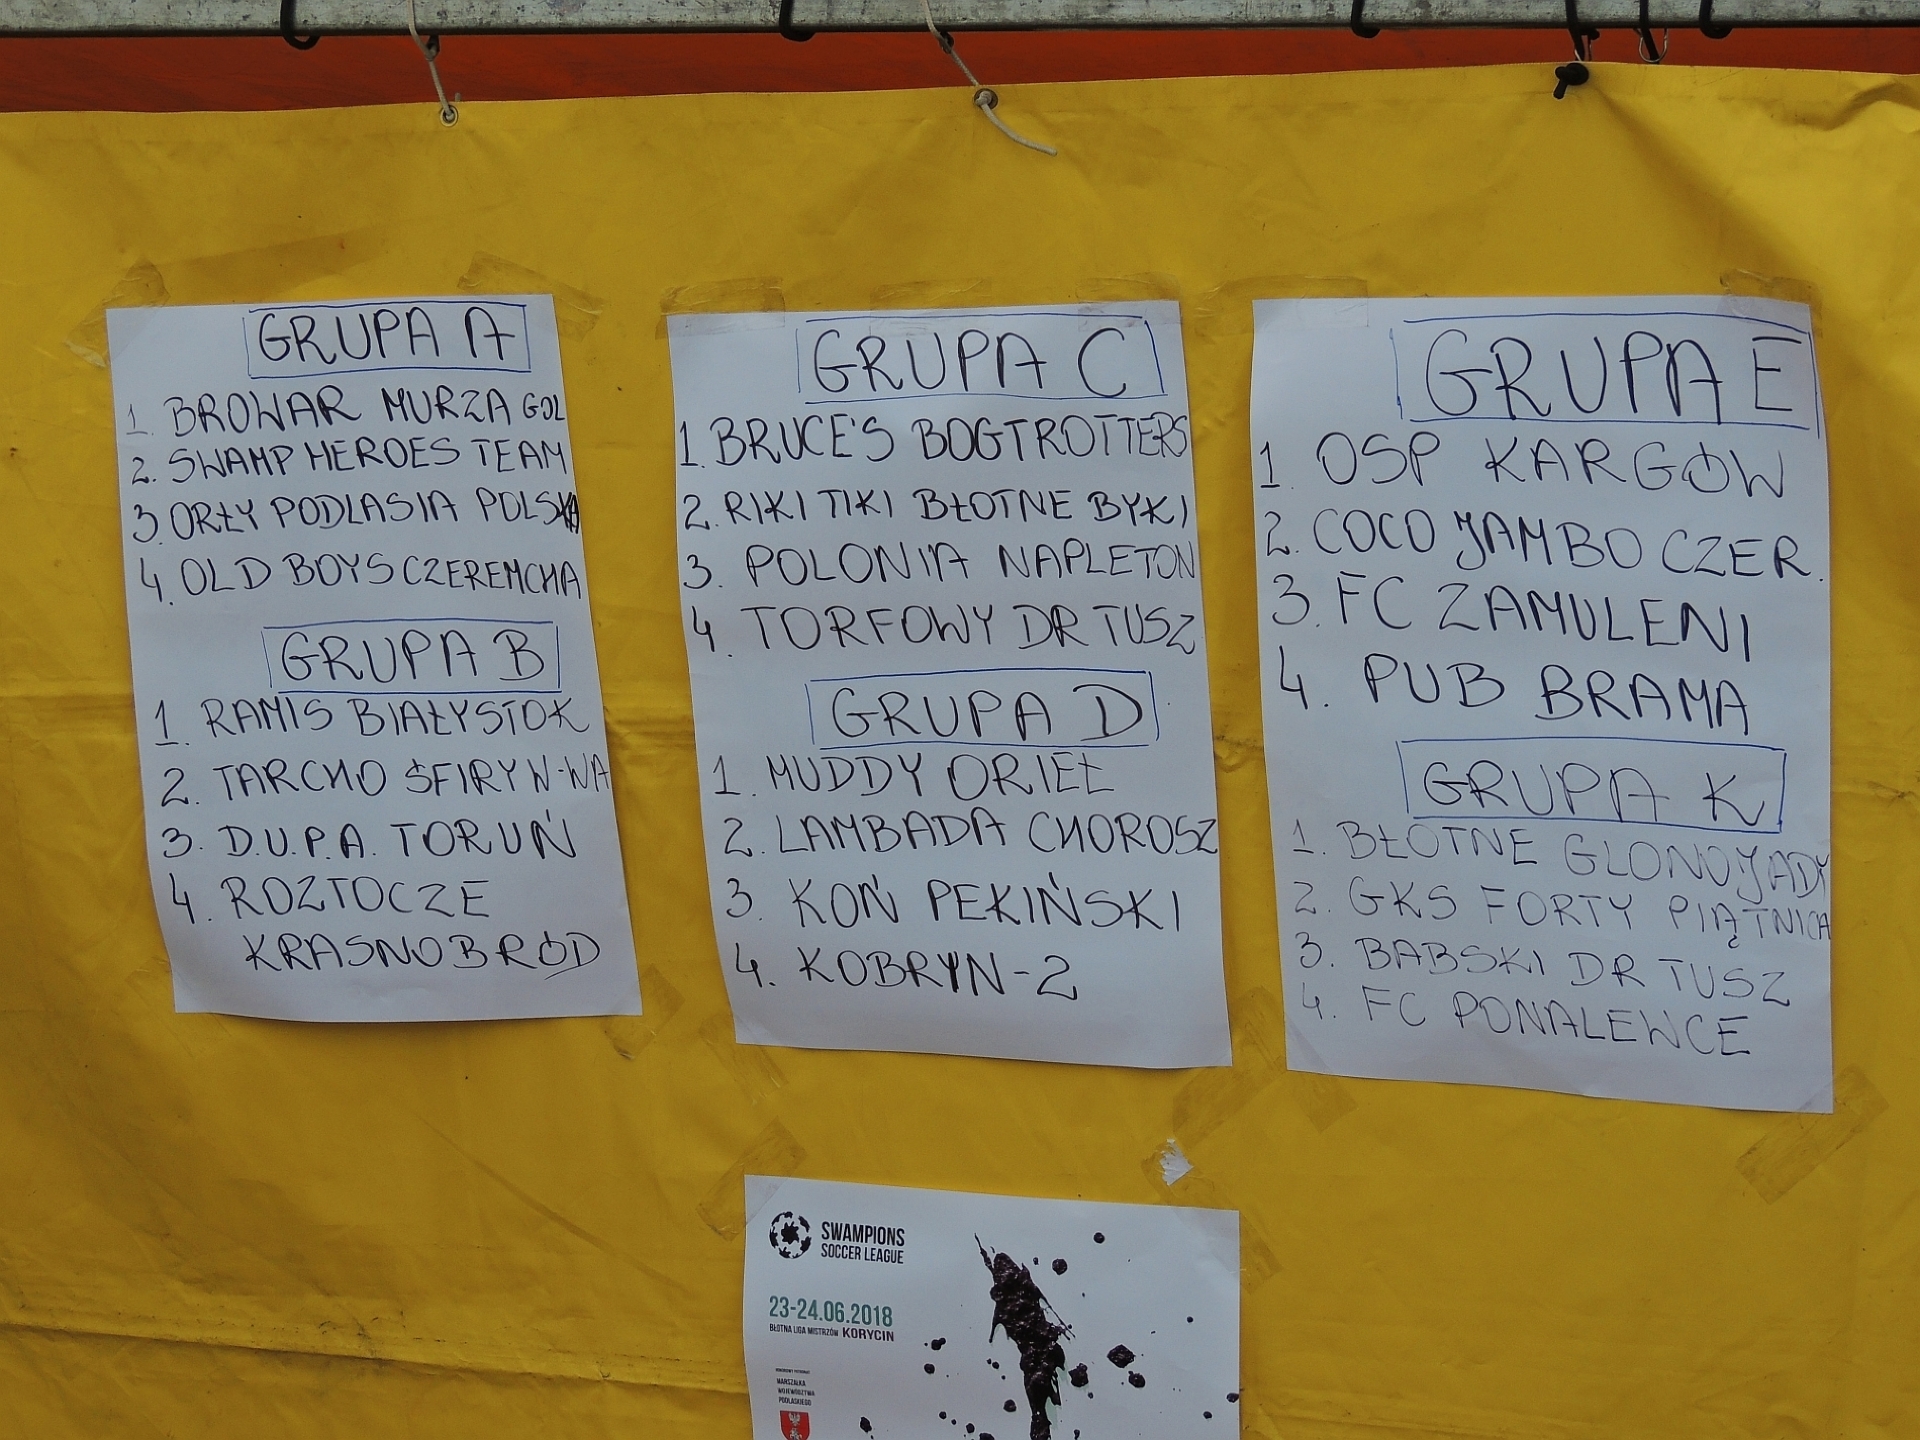 GRUPA A
1. BROWAR MURZA GOL
2. SWAMP HEROES TEAM
3. ORŁY PODLASIA POLSKA
4. OLD BOYS CZEREMCHA
GRUPA B
1. RAMIS BIAŁYSTOK
2. TARCHO ŚFIRY W-WA
3. D.U.P.A. TORUŃ
4. ROZTOCZE
KRASNOBRÓD
GRUPA C
1. BRUCE'S BOGTROTTERS
2. RIKI TIKI BŁOTNE BYKI
3. POLONIA NAPLETON
4. TORFOWY DR TUSZ
GRUPA D
1. MUDDY ORIEŁ
2. LAMBADA CHOROSZ
3. KOŃ PEKIŃSKI
4. KOBRYN-2
GRUPA E
1. OSP KARGÓW
2. COCO JAMBO CZER.
3. FC ZAMULENI
4. PUB BRAMA
GRUPA K
1. BŁOTNE GLONOJADY
2. GKS FORTY PIĄTNICA
3. BABSKI DR TUSZ
4. FC PONALEWCE
SWAMPIONS
SOCCER LEAGUE
23-24.06.2018
BŁOTNA LIGA MISTRZÓW KORYCIN
MARSZAŁKA
WOJEWÓDZTWA
PODLASKIEGO